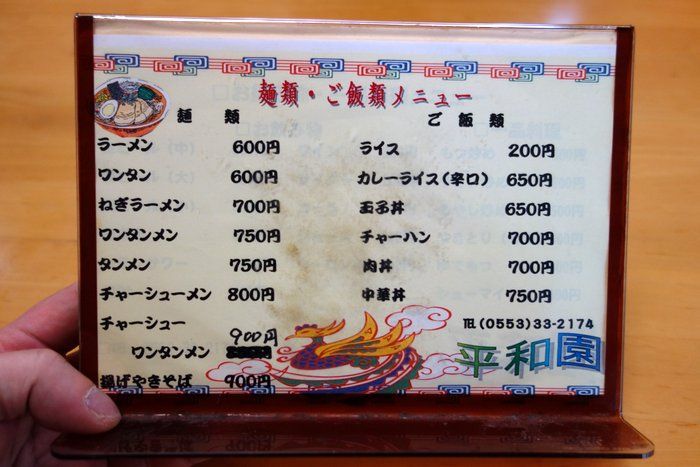 麺類・ご飯類メニュー
麺 類
ラーメン 600円
ワンタン 600円
ねぎラーメン 700円
ワンタンメン 750円
タンメン 750円
チャーシューメン 800円
チャーシュー
ワンタンメン 900円
揚げやきそば 900円
ご 飯 類
ライス 200円
カレーライス(辛口) 650円
玉子丼 650円
チャーハン 700円
肉丼 700円
中華丼 750円
℡(0553)33-2174
平和園